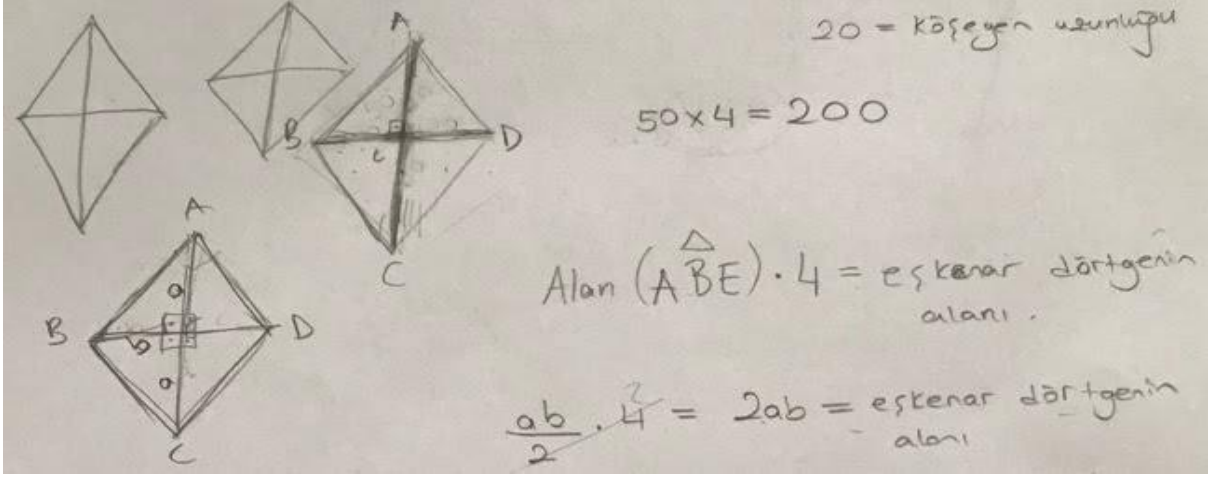 20 = Köşegen uzunluğu
50 x 4 = 200
A
B
D
C
E
Alan (ABE) . 4 = eşkenar dörtgenin
alanı .
A
a
B
b
D
a
C
ab/2 . 4 2 = 2ab = eşkenar dörtgenin
alanı